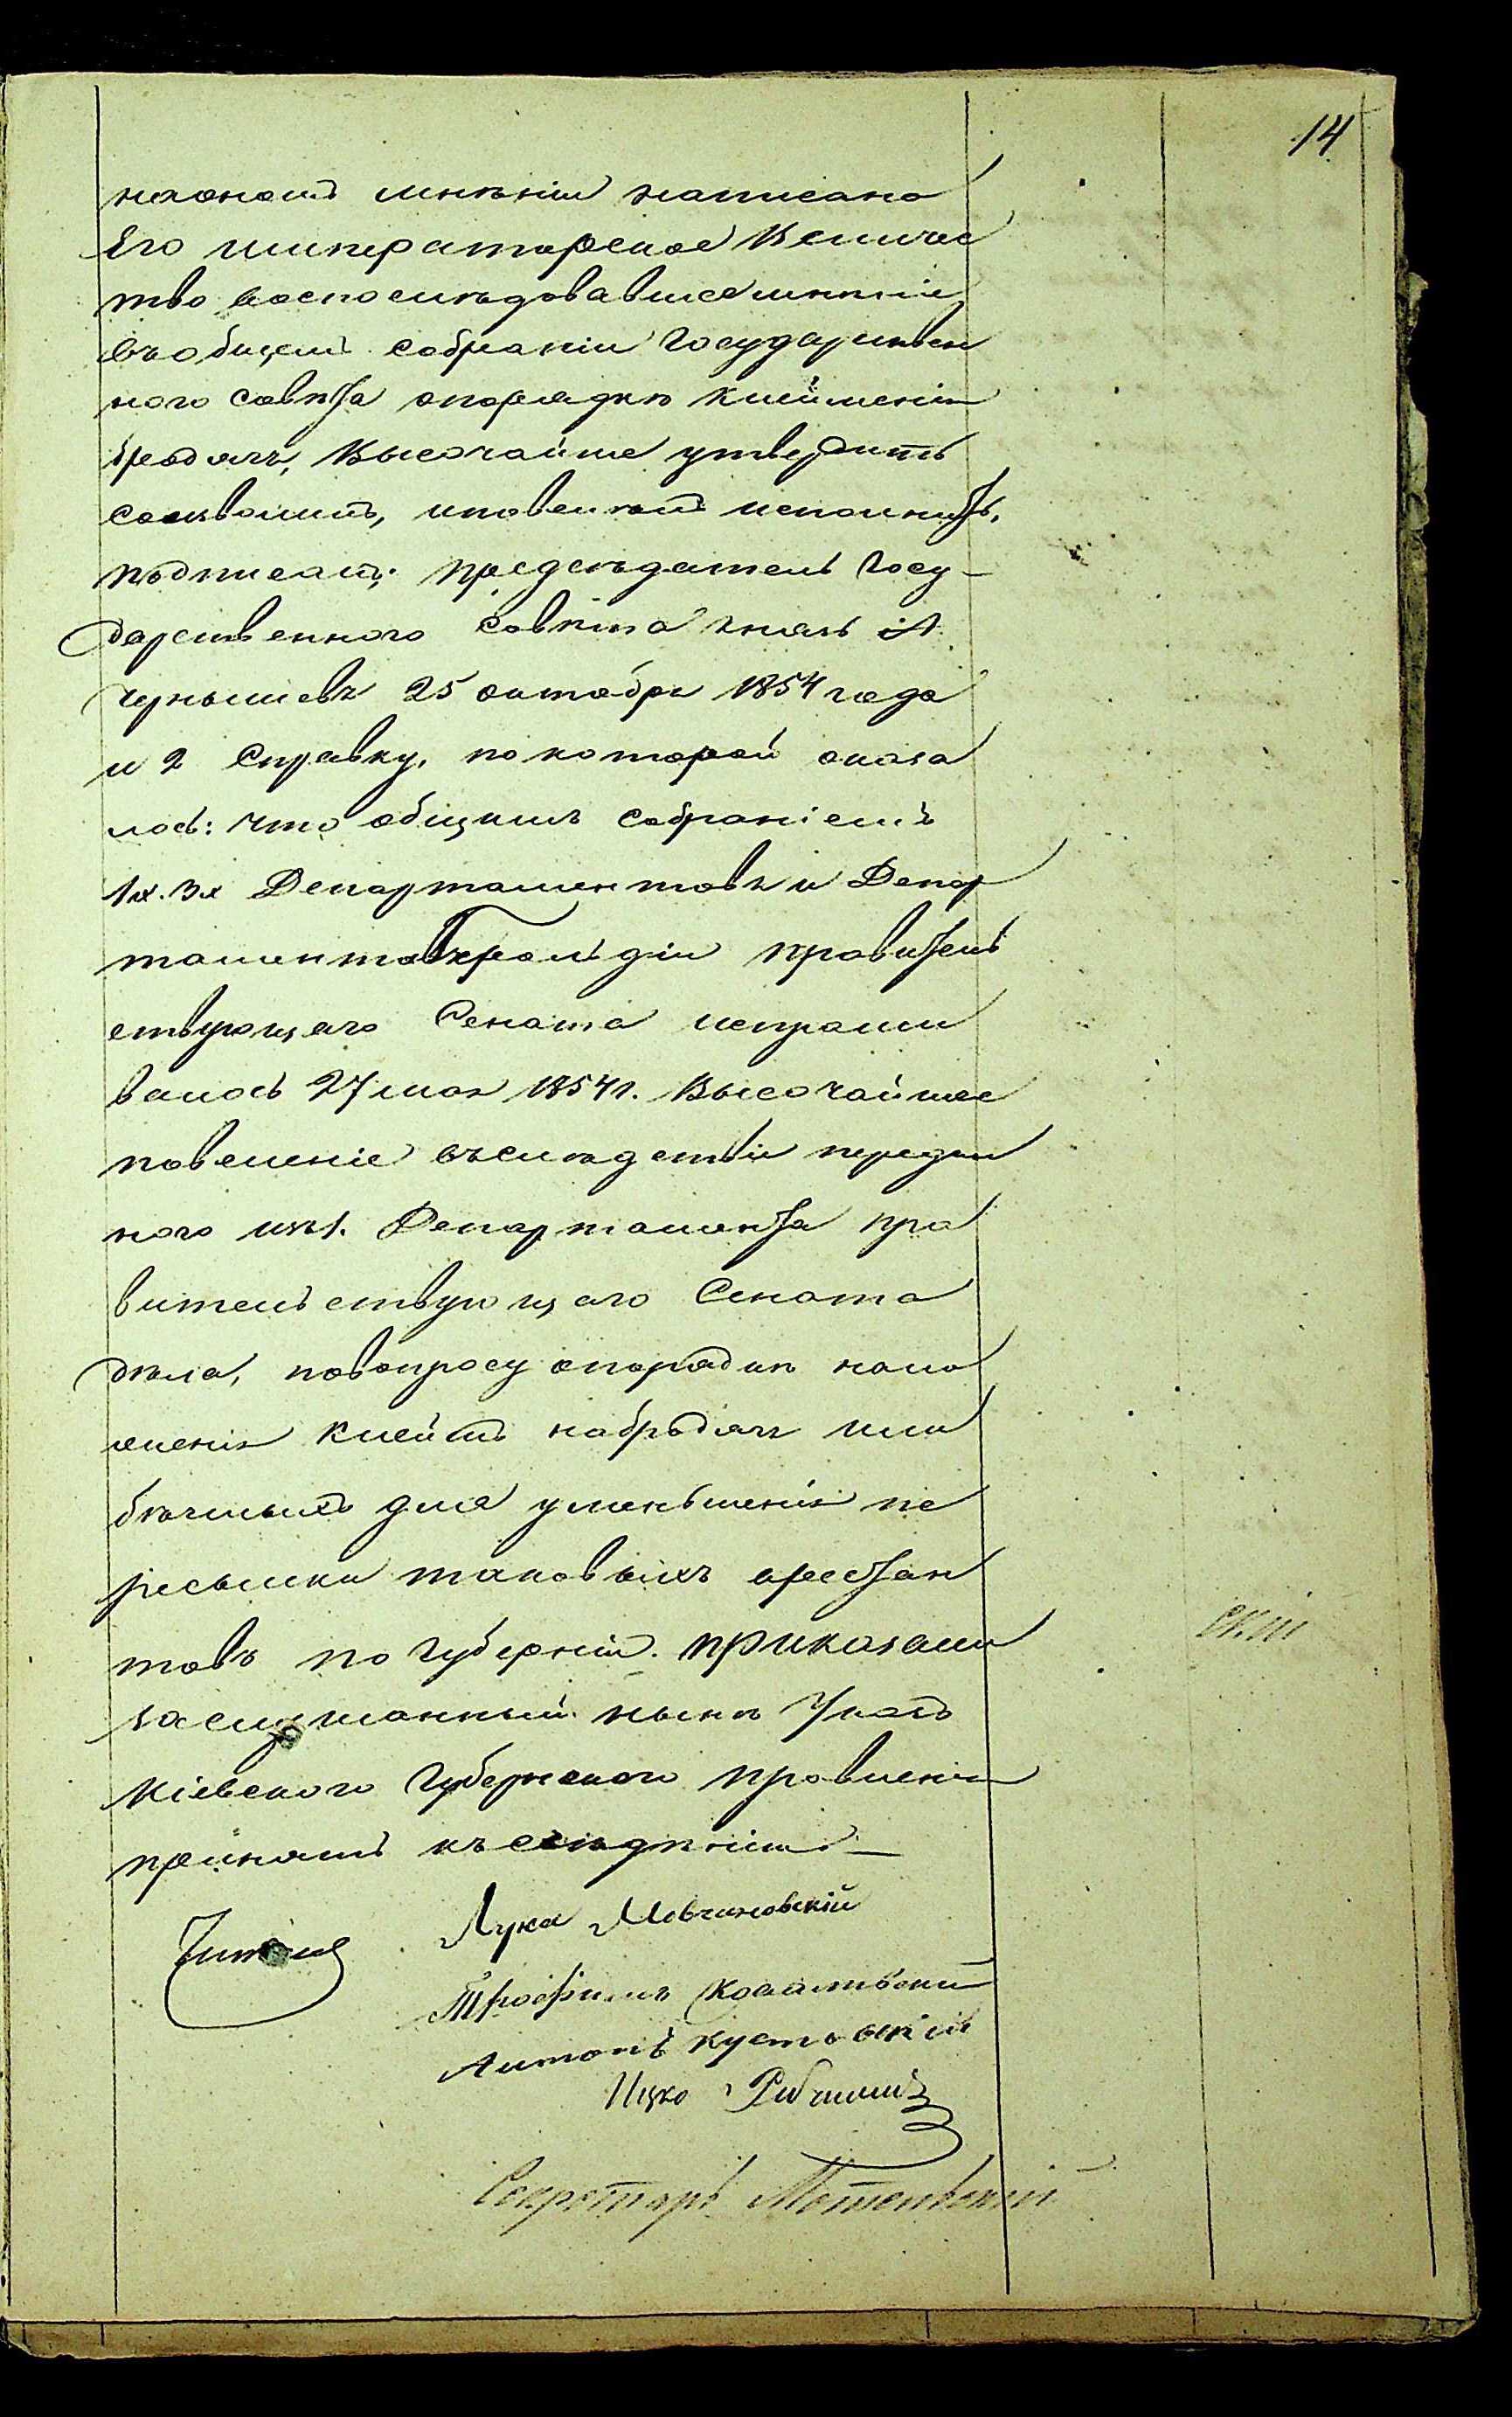 14
наономъ мнѣніи написано
Его императорское Величес
тво воспослѣдовавшее мнѣніе
въобщемъ собраніи Государствен
ного Совѣта опорядкѣ клейменія
бродягъ, Высочайше утвердить
соизволилъ, иповелѣлъ исполнить.
подписалъ: предсѣдатель Госу-
дарственного Совѣта князь А.
Чернышевъ 25 октября 1854 года
и 2 Справку, по которой оказа
лось: что общимъ собраніемъ
1х. 3х Департаментовъ и Депар
таментовъ Герольдіи правитель
ствующаго Сената испраши
валось 27 мая 1854 г. Высочайшее
повеленіе въслѣдствіи передан
ного изъ 1. Департамента пра
вительствующаго Сената
дѣла, повопросу опорядкѣ нало
женія клеймъ набродягъ или
бѣглыхъ для уменьшенія пе
ресылки таковыхъ арестан
товъ по Губерніи. приказали
заслушанный нынѣ Указъ
Кіевского Губернского правленія
принять къ свѣдѣнію —
Читалъ
Лука Мовчановскій
Трофимъ
Антонъ Кустовскій
Ицко
Секретарь